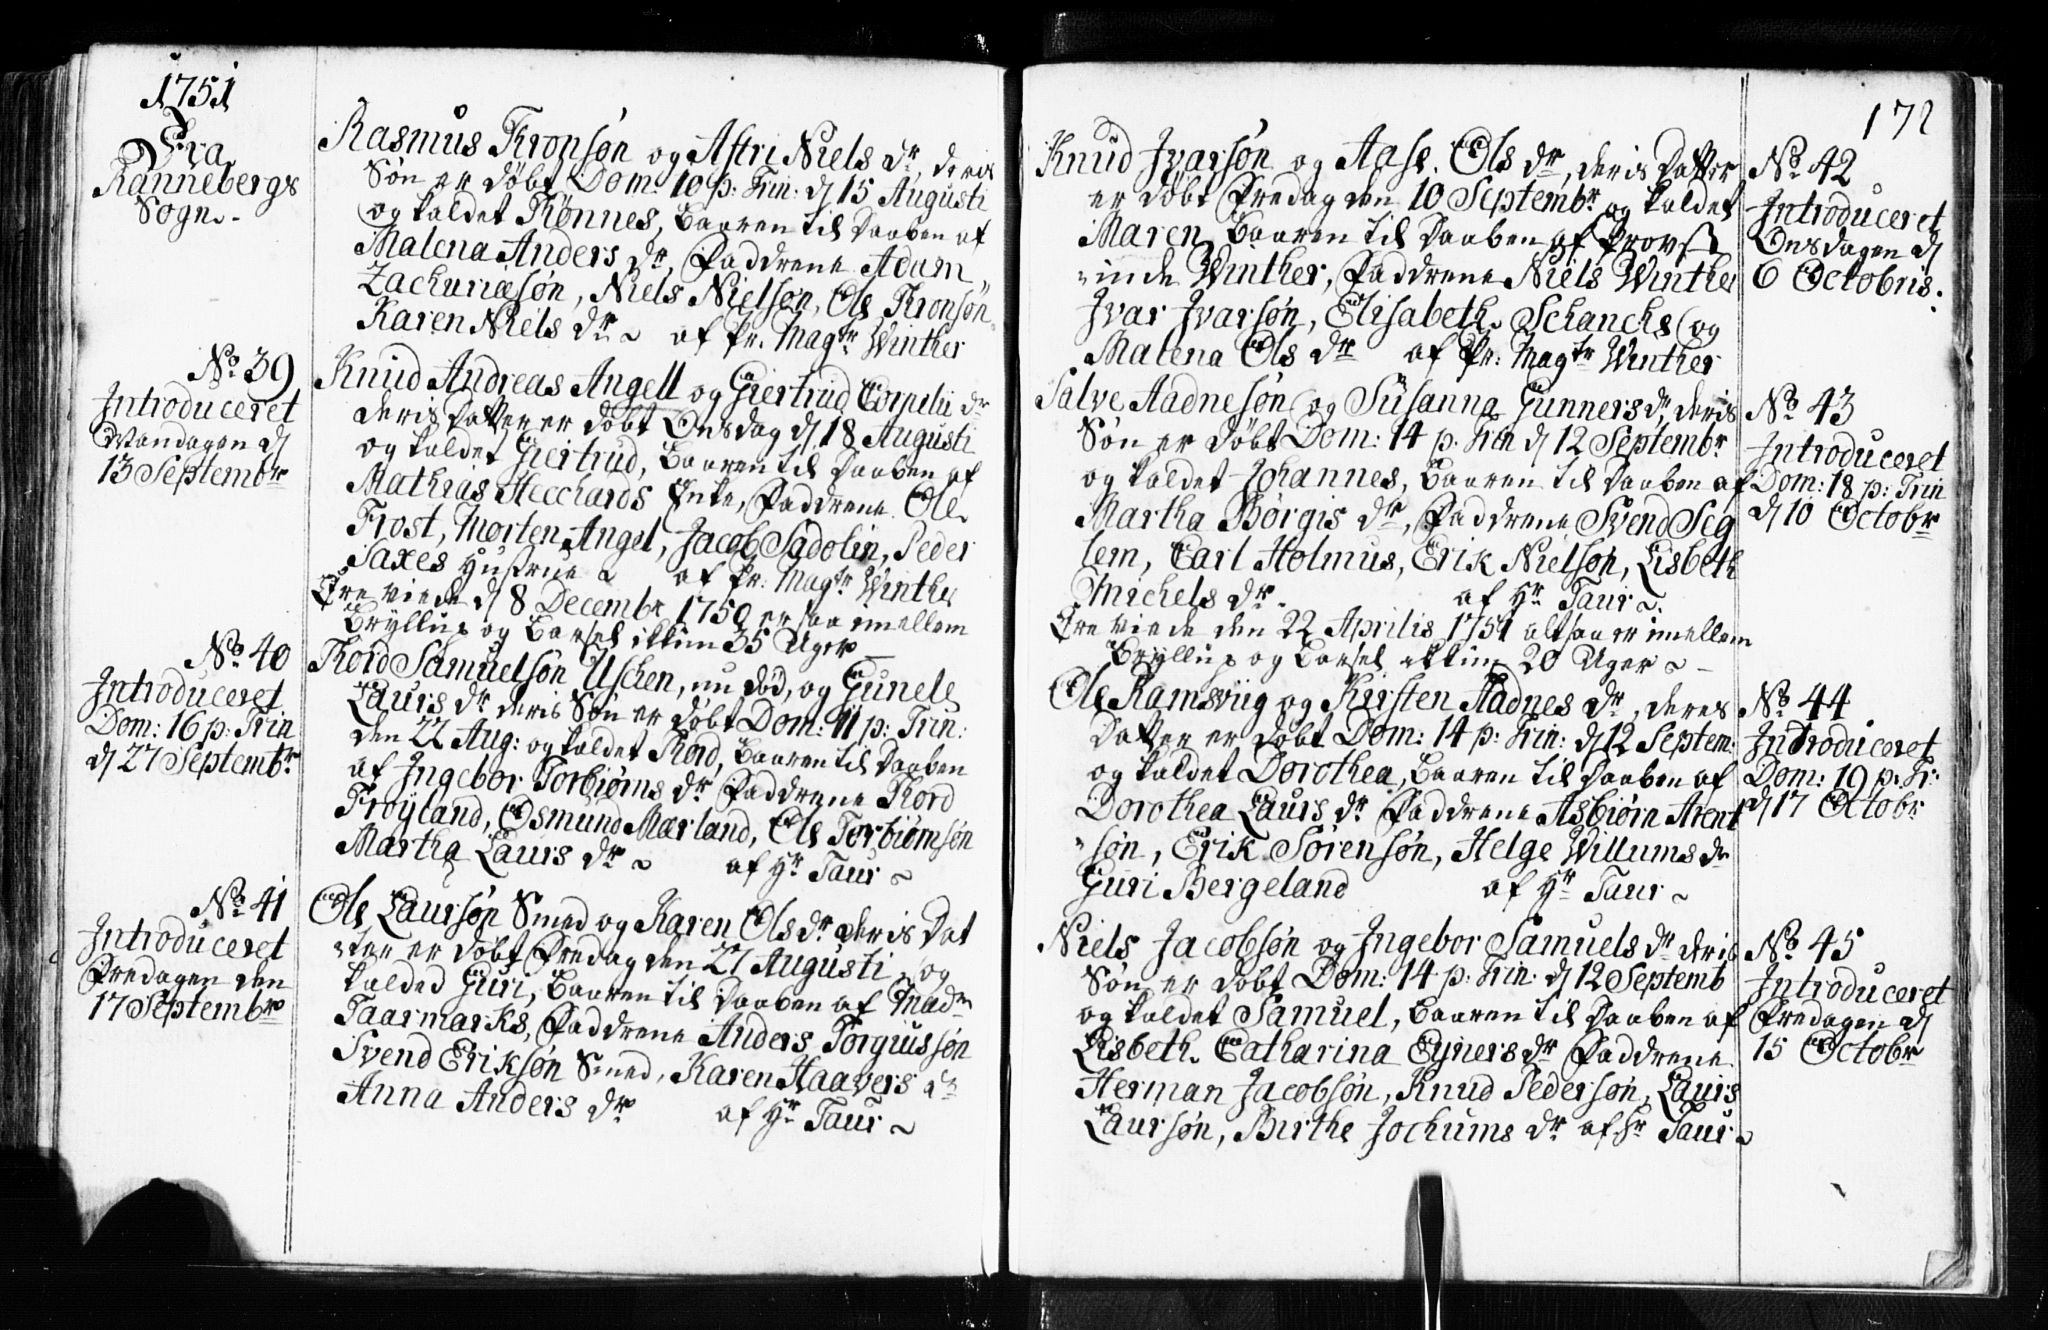 1751
Fra
Rannebergs
Sogn.
Rasmus Tronsøn og Astri Niels dr. deris
Søn er døbt Dom: 10 p: Trin: d 15 Augusti
og kaldet Tønnes, Baaren til Daaben af
Malena Anders dr, Faddrene Adam
Zachariæsøn, Niels Nielsøn, Ole Tronsøn
Karen Niels dr. af Pr. Magtr Winther
No. 39
Introduceret
Mandagen d
13 Septembr
Knud Andreas Angell og Giertrud Corneli dr
deris Datter er døbt Onsdag d 18 Augusti
og kaldet Giertrud, Baaren til Daaben af
Mathias Hecchards Enke, Faddrene Ole
Frost, Morten Angel, Jacob Sadolin, Peder
Saxes Hustrue af Pr: Magtr Winther
Ere viede d 8 Decembr 1750 er saa imellem
Bryllup og Barsel ikkun 35 Uger
No. 40
Introduceret
Dom: 16 p: Trin
d 27 Septembr
Tord Samuelsøn Uschen, nu død, og Gunele
Laurs dr deris Søn er døbt Dom: 11 p: Trin:
den 22 Aug: og kaldet Tord, Baaren til Daaben
af Ingebor Torbiørns dr Faddrene Tord
Frøyland, Osmund Mærland, Ole Torbiørnsøn
Martha Laurs dr af Hr Taur
No. 41
Introduceret
Fredagen den
17 Septembr
Ole Laursøn Smed og Karen Ols dr deris Dat
ter er døbt Fredag den 27 Augusti og
kaldet Guri, Baaren til Daaben af Mad
Taarmarks, Faddrene Anders Torgiussøn
Svend Eriksøn Smed, Karen Haavers dr
Anna Anders dr af Hr Taur
172
Knud Ivarsøn og Aase Ols dr, deris Datter
er døbt Fredag den 10 Septembr og kaldet
Maren Baaren til Daaben af Provst
inde Winther, Faddrene Niels Winther
Ivar Ivarsøn, Elisabeth Schanche og
Malena Ols dr af Pr: Magtr Winther
No 42
Introduceret
Onsdagen d
6 Octobris.
Salve Aadnesøn og Susanna Gunners dr, deris
Søn er døbt Dom: 14 p. Trin d 12 Septembr
og kaldet Johannes, Baaren til Daaben af
Martha Børgis dr, Faddrene Svend Seg
lem, Carl Holmus, Erik Nielsøn, Lisbeth
Michels dr. af Hr Taur
Ere viede den 22 Aprilis 1751 altsaa er imellem
Bryllup og Barsel ikkun 20 Uger
No 43
Introduceret
Dom: 18 p: Trin
d 10 Octobr
Ole Ramsviig og Kirsten Aadnes dr, deres
Datter er døbt Dom: 14 p: Trin: d 12 Septem:
og kaldet Dorothea, Baaren til Daaben af
Dorothea Laurs dr Faddrene Asbiørn Arent
søn, Erik Sørensøn, Helge Willums dr
Guri Bergeland af Hr Taur
No 44
Introduceret
Dom: 19 p: Tr:
d 17 Octobr
Niels Jacobsøn og Ingebor Samuels dr deris
Søn er døbt Dom: 14 p: Trin: d 12 Septemb
og kaldet Samuel, Baaren til Daaben af
Lisbeth Catharina Eyners dr Faddrene
Herman Jacobsøn, Knud Pedersøn, Laurs
Laursøn, Birthe Jochums dr af Hr Taur
No 45
Introduceret
Fredagen d
15 Octobr